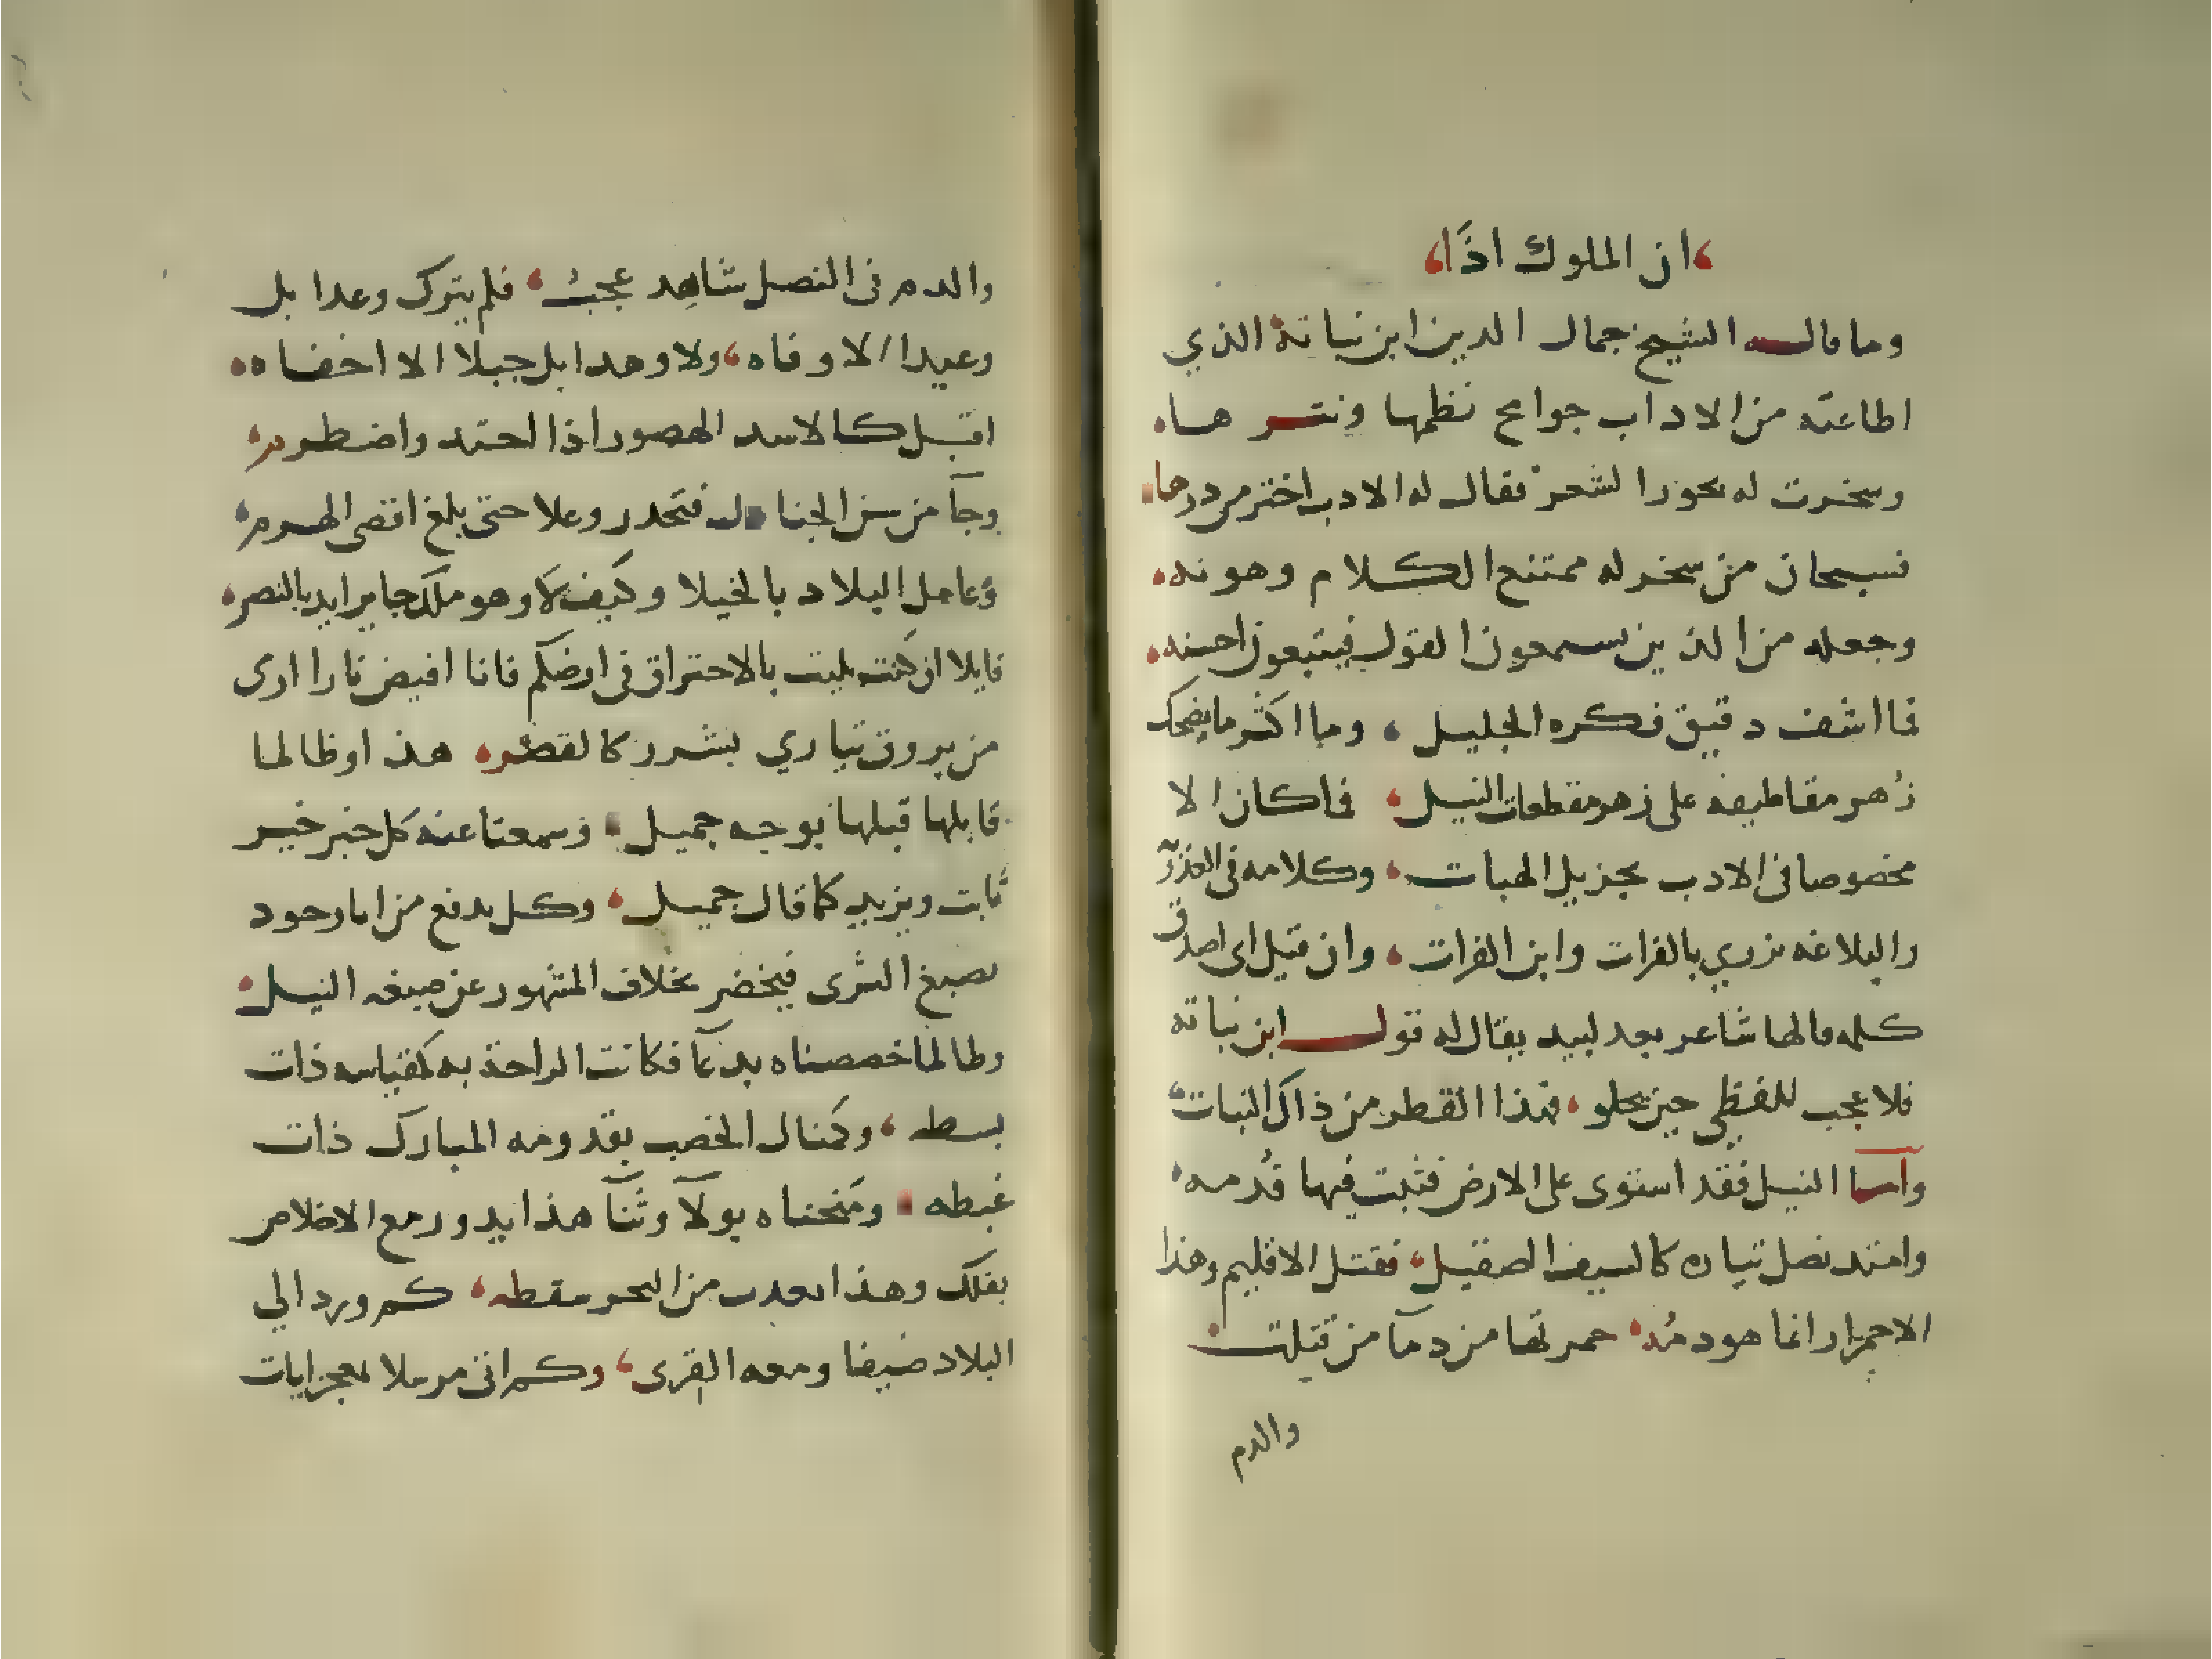 ان الملوك اذا
وما قاله الشيخ جمال الدين ابن نباتة الذي
اطاعته من الاداب جوامح نظمها ونثرهاه
وسخرت له بحور الشعر فقال له الادب اختر من درها
فسبحان من سخر له ممتنع الكلام وهونه
وجعله من الذين يسمعون القول فيتبعون احسنه
فما اشف دقيق فكره الجليل وما اكثر ما يضحك
زهر مقاطيفه على زهر مقطعات النيل فاكان الا
مخصوصا فى الادب بجزيل الهبات وكلامه فى
والبلاغه يزري بالفرات وابن الفرات وان قيل اى اصدق
كلمه قالها شاعر بعد لبيد يقال له قول ابن نباته
فلا عجب للفظي حين يحلو فهذا القطر من ذاك النبات
وأما النيل فقد استوى على الارض فثبت فيها قدمه
وامتد نصل تياره كالسيف الصقيل فقتل الاقليم وهذا
الاحمرار انما هو دمه حمرتها من دمآ من قتلت
والدم
والدم فى النصل شاهد عجب فلم يترك وعدا بل
وعيدا الا وفاه ولا وهدا بل جبلا الا اخفاه
اقبل كالاسد الهصور اذا احتد واضطرم
وجآ من سن الجنادل فتحدر وعلا حتى بلغ اقصى الهرم
وعامل البلاد بالخيلا وكيف لا وهو ملك جاير ايد بالنصر
قايلا ان كنت بليت بالاحتراق فى ارضكم فانا افيض نارا ارى
من بروق تياري بشرر كالقصر هذا وظالما
قابلها قبلها بوجه جميل وسمعنا عنه كل خبر خير
ثابت ويزيد كما قال جميل وكل يدفع من اماوحود
بصبغ الثرى فيخضر بخلاف المشهور عن صبغه النيل
وطالما خصصناه بدعآ فكانت الراحة به كمقياسه ذات
بسطه وكمنال الخصب بقدومه المبارك ذات
غبطه ومنحناه بولآ وثنآ هذا يدور مع الاظلام
بفلك وهذا يعدب من البحر بنقطه كم ورد الي
البلاد ضيفا ومعه القرى وكم اتى مرسلا بمعجز ايات